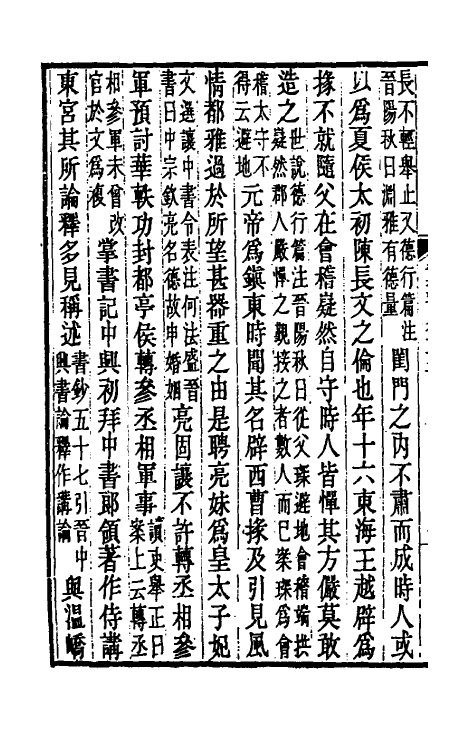 長不輕舉止又德行篇注晉陽秋曰淵雅有德量閨門之內不肅而成時人或
以爲夏侯太初陳長文之倫也年十六東海王越辟爲
掾不就隨父在會稽嶷然自守時人皆憚其方儼莫敢
造之世說德行篇注晉陽秋曰從父琛避地會稽端拱嶷然郡人嚴憚之覿接之者數人而已案琛爲會
稽太守不得云避地元帝爲鎮東時聞其名辟西曹掾及引見風
情都雅過於所望甚器重之由是聘亮妹爲皇太子妃
文選讓中書令表注何法盛晉書曰中宗欽亮名德故申婚姻亮固讓不許轉丞相參
軍預討華軼功封都亭侯轉參丞相軍事讀史舉正曰案上云轉丞
相參軍未曾改官於文爲複掌書記中興初拜中書郎領著作侍講
東宮其所論釋多見稱述書鈔五十七引晉中興書論釋作講論與溫嶠